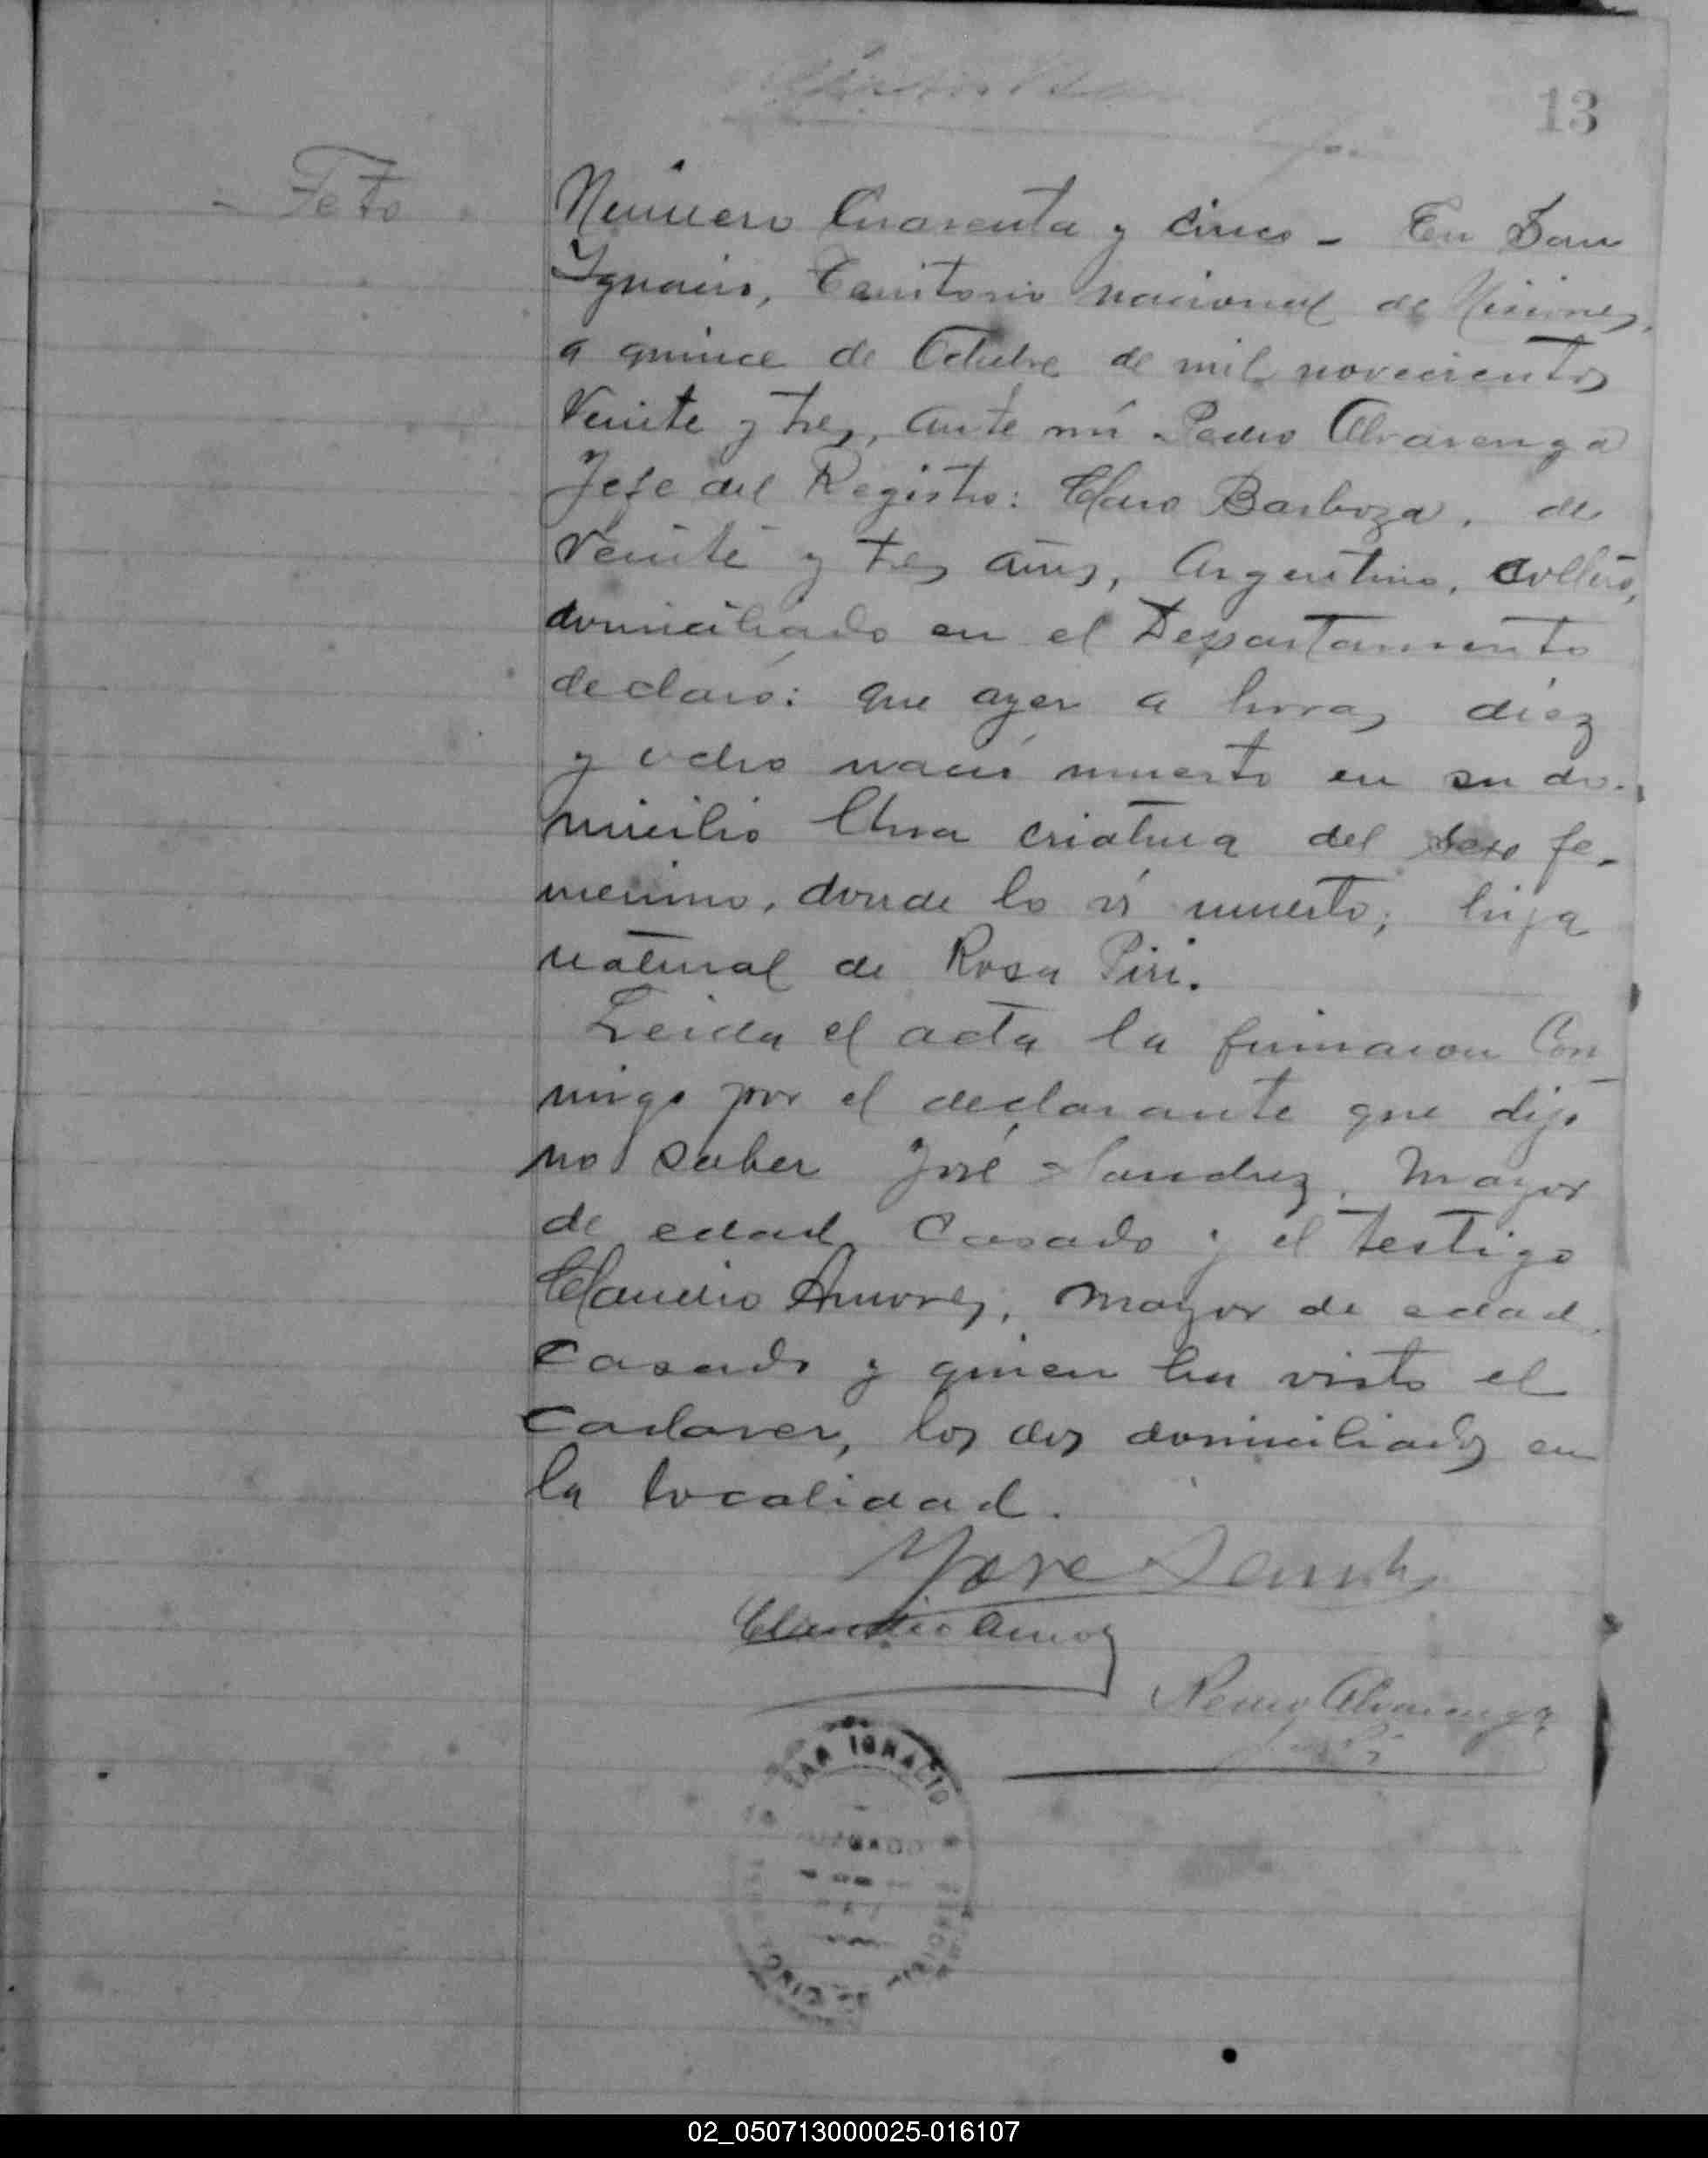 13
Feto
Número Cuarenta y cinco - En San
Ygnacio, Territorio nacional de Misiones,
a quince de Octubre de mil novecientos
Veinte y tres, ante mí Pedro Alvarenga
Jefe del Registro: Claro Barboza, de
Veinte y tres años, Argentino, soltero,
domiciliado en el Departamento
declaró: que ayer a horas diez
y ocho nació muerto en su do-
micilio Una criatura del sexo fe-
menino, donde lo ví muerto; hija
natural de Rosa Piri.
Leida el acta la firmaron Con
migo por el declarante que dijo
no saber José Sanchez, Mayor
de edad Casado y el testigo
Claudio Amores, mayor de edad
Casado y quien ha visto el
Cadaver, los dos domiciliados en
la localidad.
Jose
Claudio
Pedro Alvarenga
SAN IGNACIO
02_050713000025-016107